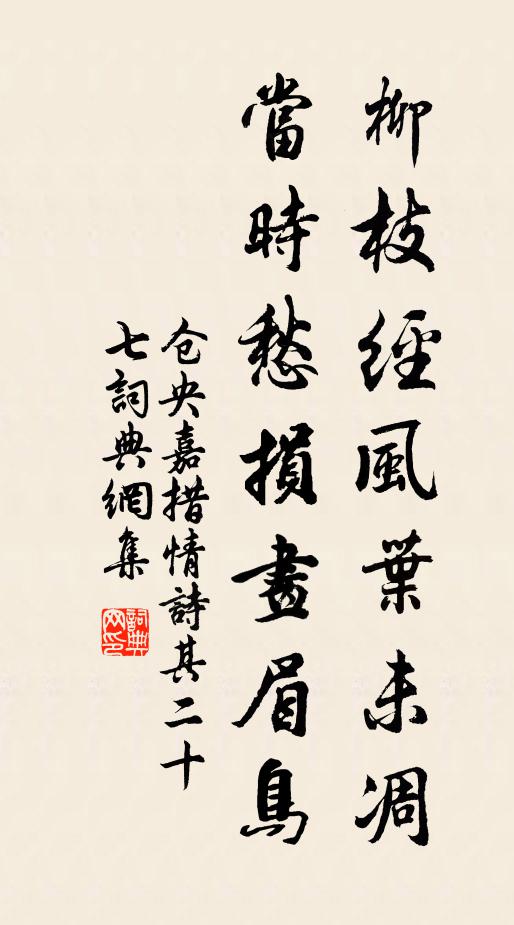 柳枝經風葉未凋
當時愁損畫眉鳥
仓央嘉措情詩其二十
七詞典網集
詞典网印